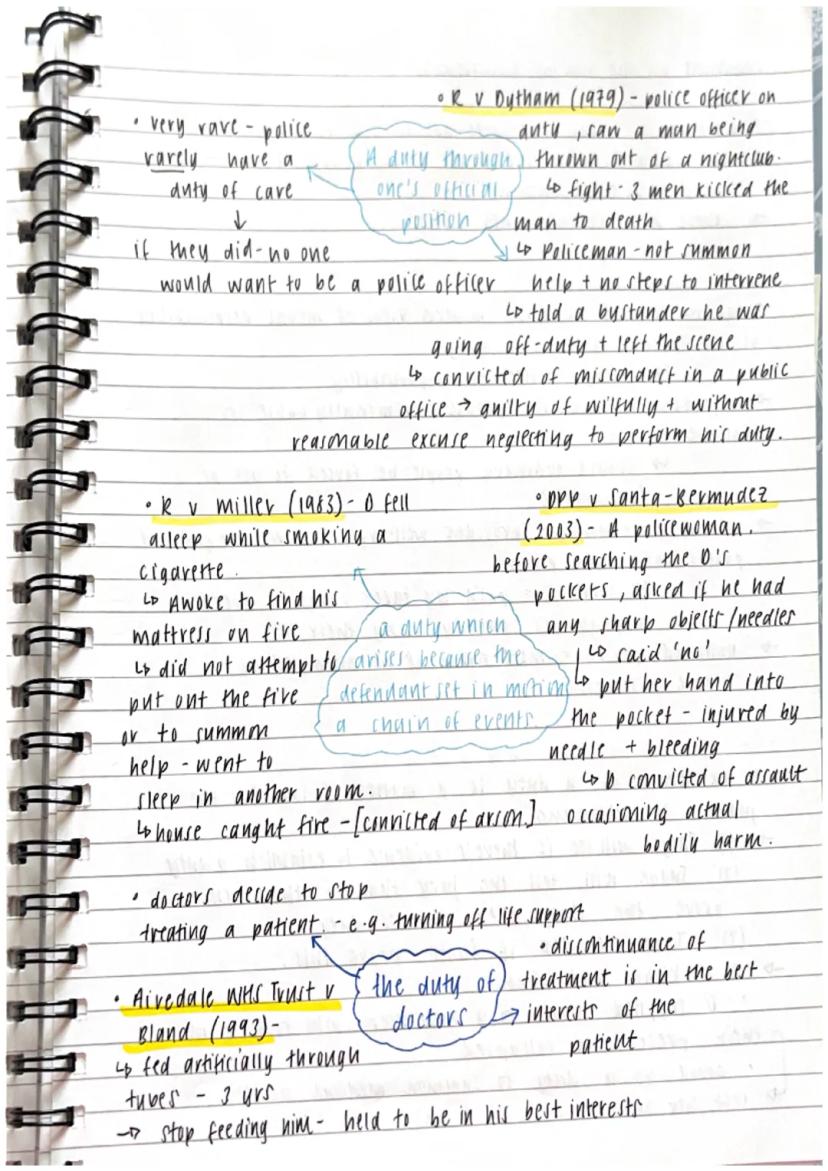 • R v Dytham (1979) - police officer on
duty, saw a man being
thrown out of a nightclub.
↳ fight - 3 men kicked the
man to death
↳ Policeman - not summon
help + no steps to intervene
↳ told a bystander he was
going off-duty + left the scene
↳ convicted of misconduct in a public
office → guilty of wilfully + without
reasonable excuse neglecting to perform his duty.
• very rare - police
rarely have a
duty of care
↓
if they did - no one
would want to be a police officer
A duty through
one's official
position
• R v Miller (1983) - D fell
asleep while smoking a
cigarette.
↳ Awoke to find his
mattress on fire
↳ did not attempt to
put out the fire
or to summon
help - went to
sleep in another room.
↳ house caught fire - [convicted of arson]
a duty which
arises because the
defendant set in motion
a chain of events
• DPP v Santa-Bermudez
(2003) - A policewoman.
before searching the D's
pockets, asked if he had
any sharp objects/needles
↳ said 'no'
↳ put her hand into
the pocket - injured by
needle + bleeding
↳ D convicted of assault
occasioning actual
bodily harm.
• doctors decide to stop
treating a patient - e.g. turning off life support
the duty of
doctors
• discontinuance of
treatment is in the best
interests of the
patient
• Airedale NHS Trust v
Bland (1993) -
↳ fed artificially through
tubes - 3 yrs
→ stop feeding him - held to be in his best interests